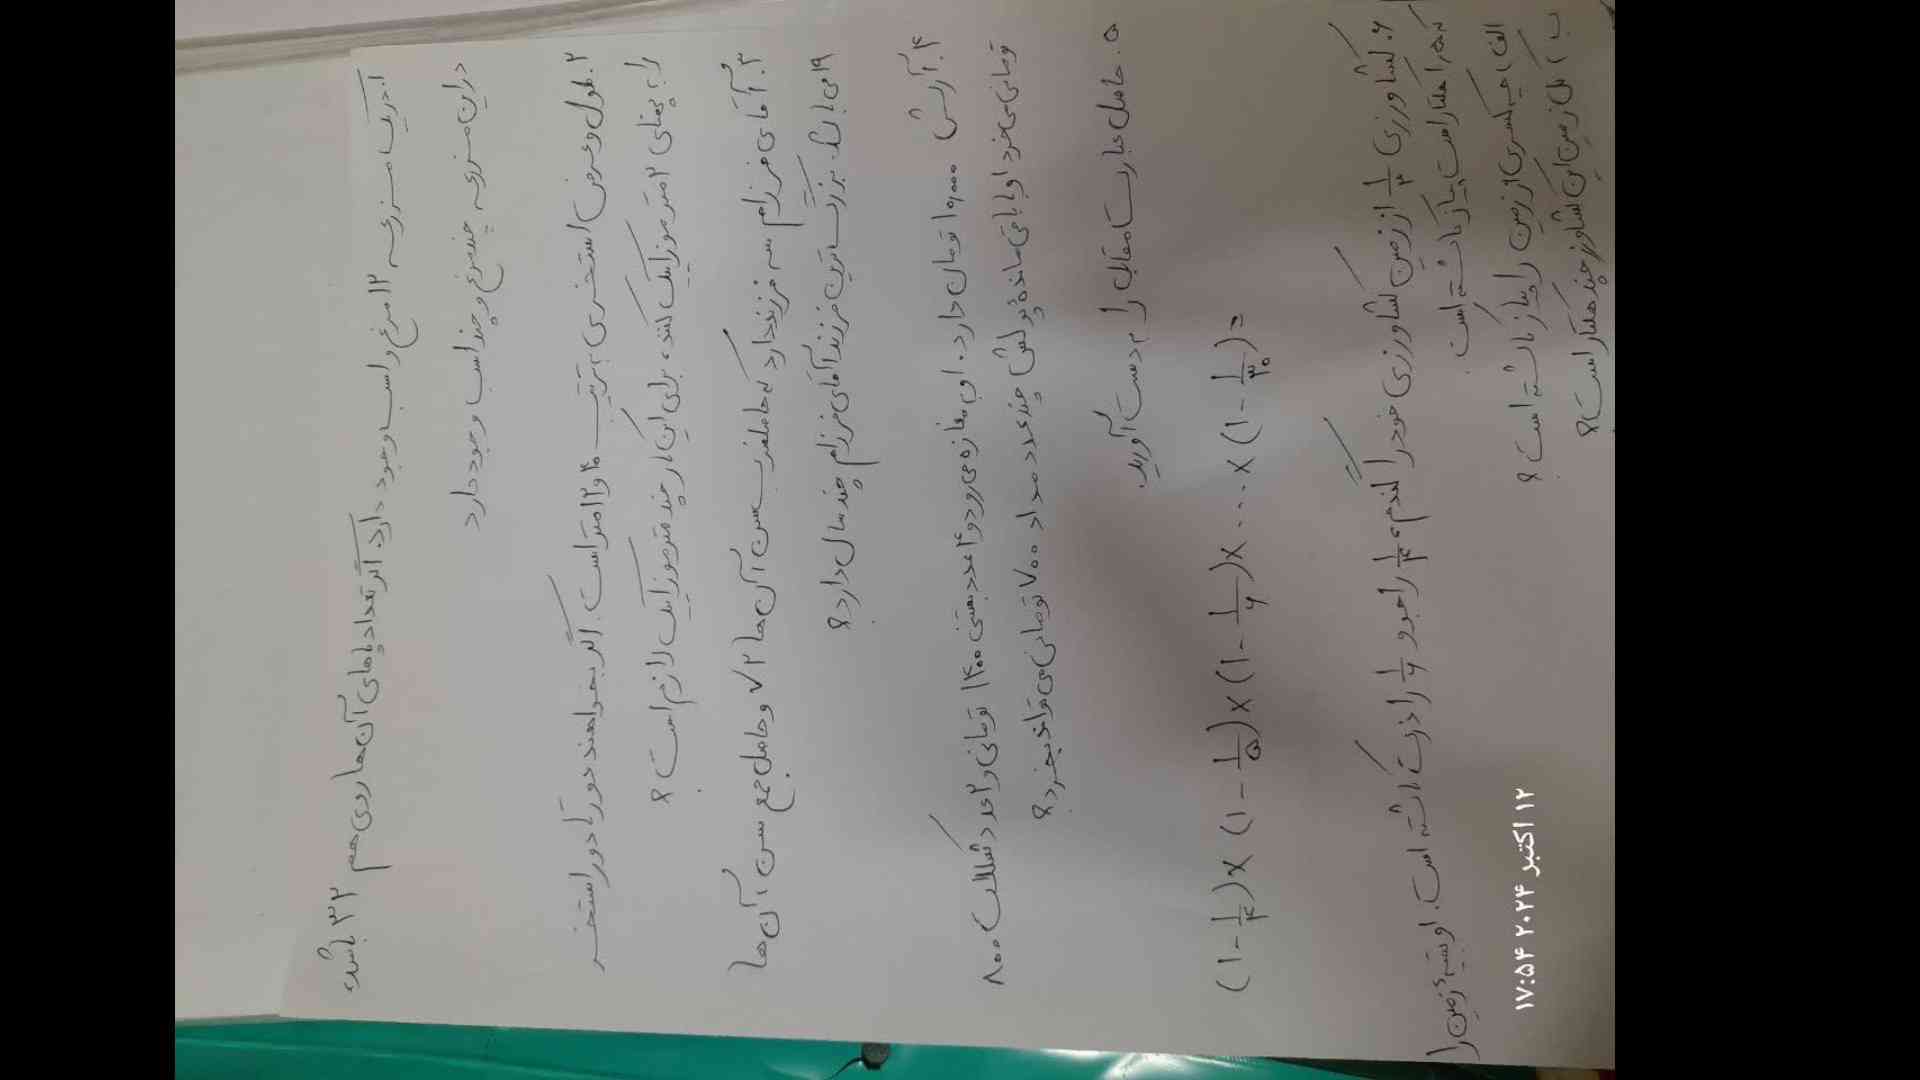 ۱. در یک مزرعه ۱۲ مرغ و اسب وجود دارد. اگر تعداد پاهای آن ها روی هم ۳۲ باشد،
در این مزرعه چند مرغ و چند اسب وجود دارد
۲. طول و عرض استخری به ترتیب ۴۰ و ۱۲ متر است. اگر بخواهند دور تا دور استخر
را به پهنای ۲ متر موزاییک کنند، برای این کار چند متر موزاییک لازم است؟
۳. آقای فرزام سه فرزند دارد که حاصلضرب سن آن ها ۷۲ و حاصل جمع سن آن ها
۱۹ می باشد. بزرگ ترین فرزند آقای فرزام چند سال دارد؟
۴. آرش ۱۰,۰۰۰ تومان دارد. او به مغازه می رود و ۴ عدد بستنی ۱۴۰۰ تومانی و ۲ عدد شکلات ۸۰۰
تومانی می خرد او با باقی مانده پولش چند عدد مداد ۷۰۰ تومانی می تواند بخرد؟
۵. حاصل عبارت مقابل را به دست آورید.
(۱ - ۱/۴) × (۱ - ۱/۵) × (۱ - ۱/۶) × ... × (۱ - ۱/۳۰) =
۶. کشاورزی ۱/۳ از زمین کشاورزی خود را گندم، ۱/۴ را جو و ۱/۶ را ذرت کاشته است. او بقیه زمین را
که ۵ هکتار است پیاز کاشته است.
الف) چه کسری از زمین را پیاز کاشته است؟
ب) کل زمین این کشاورز چند هکتار است؟
۱۲ اکتبر ۲۰۲۴ ۱۷:۵۴